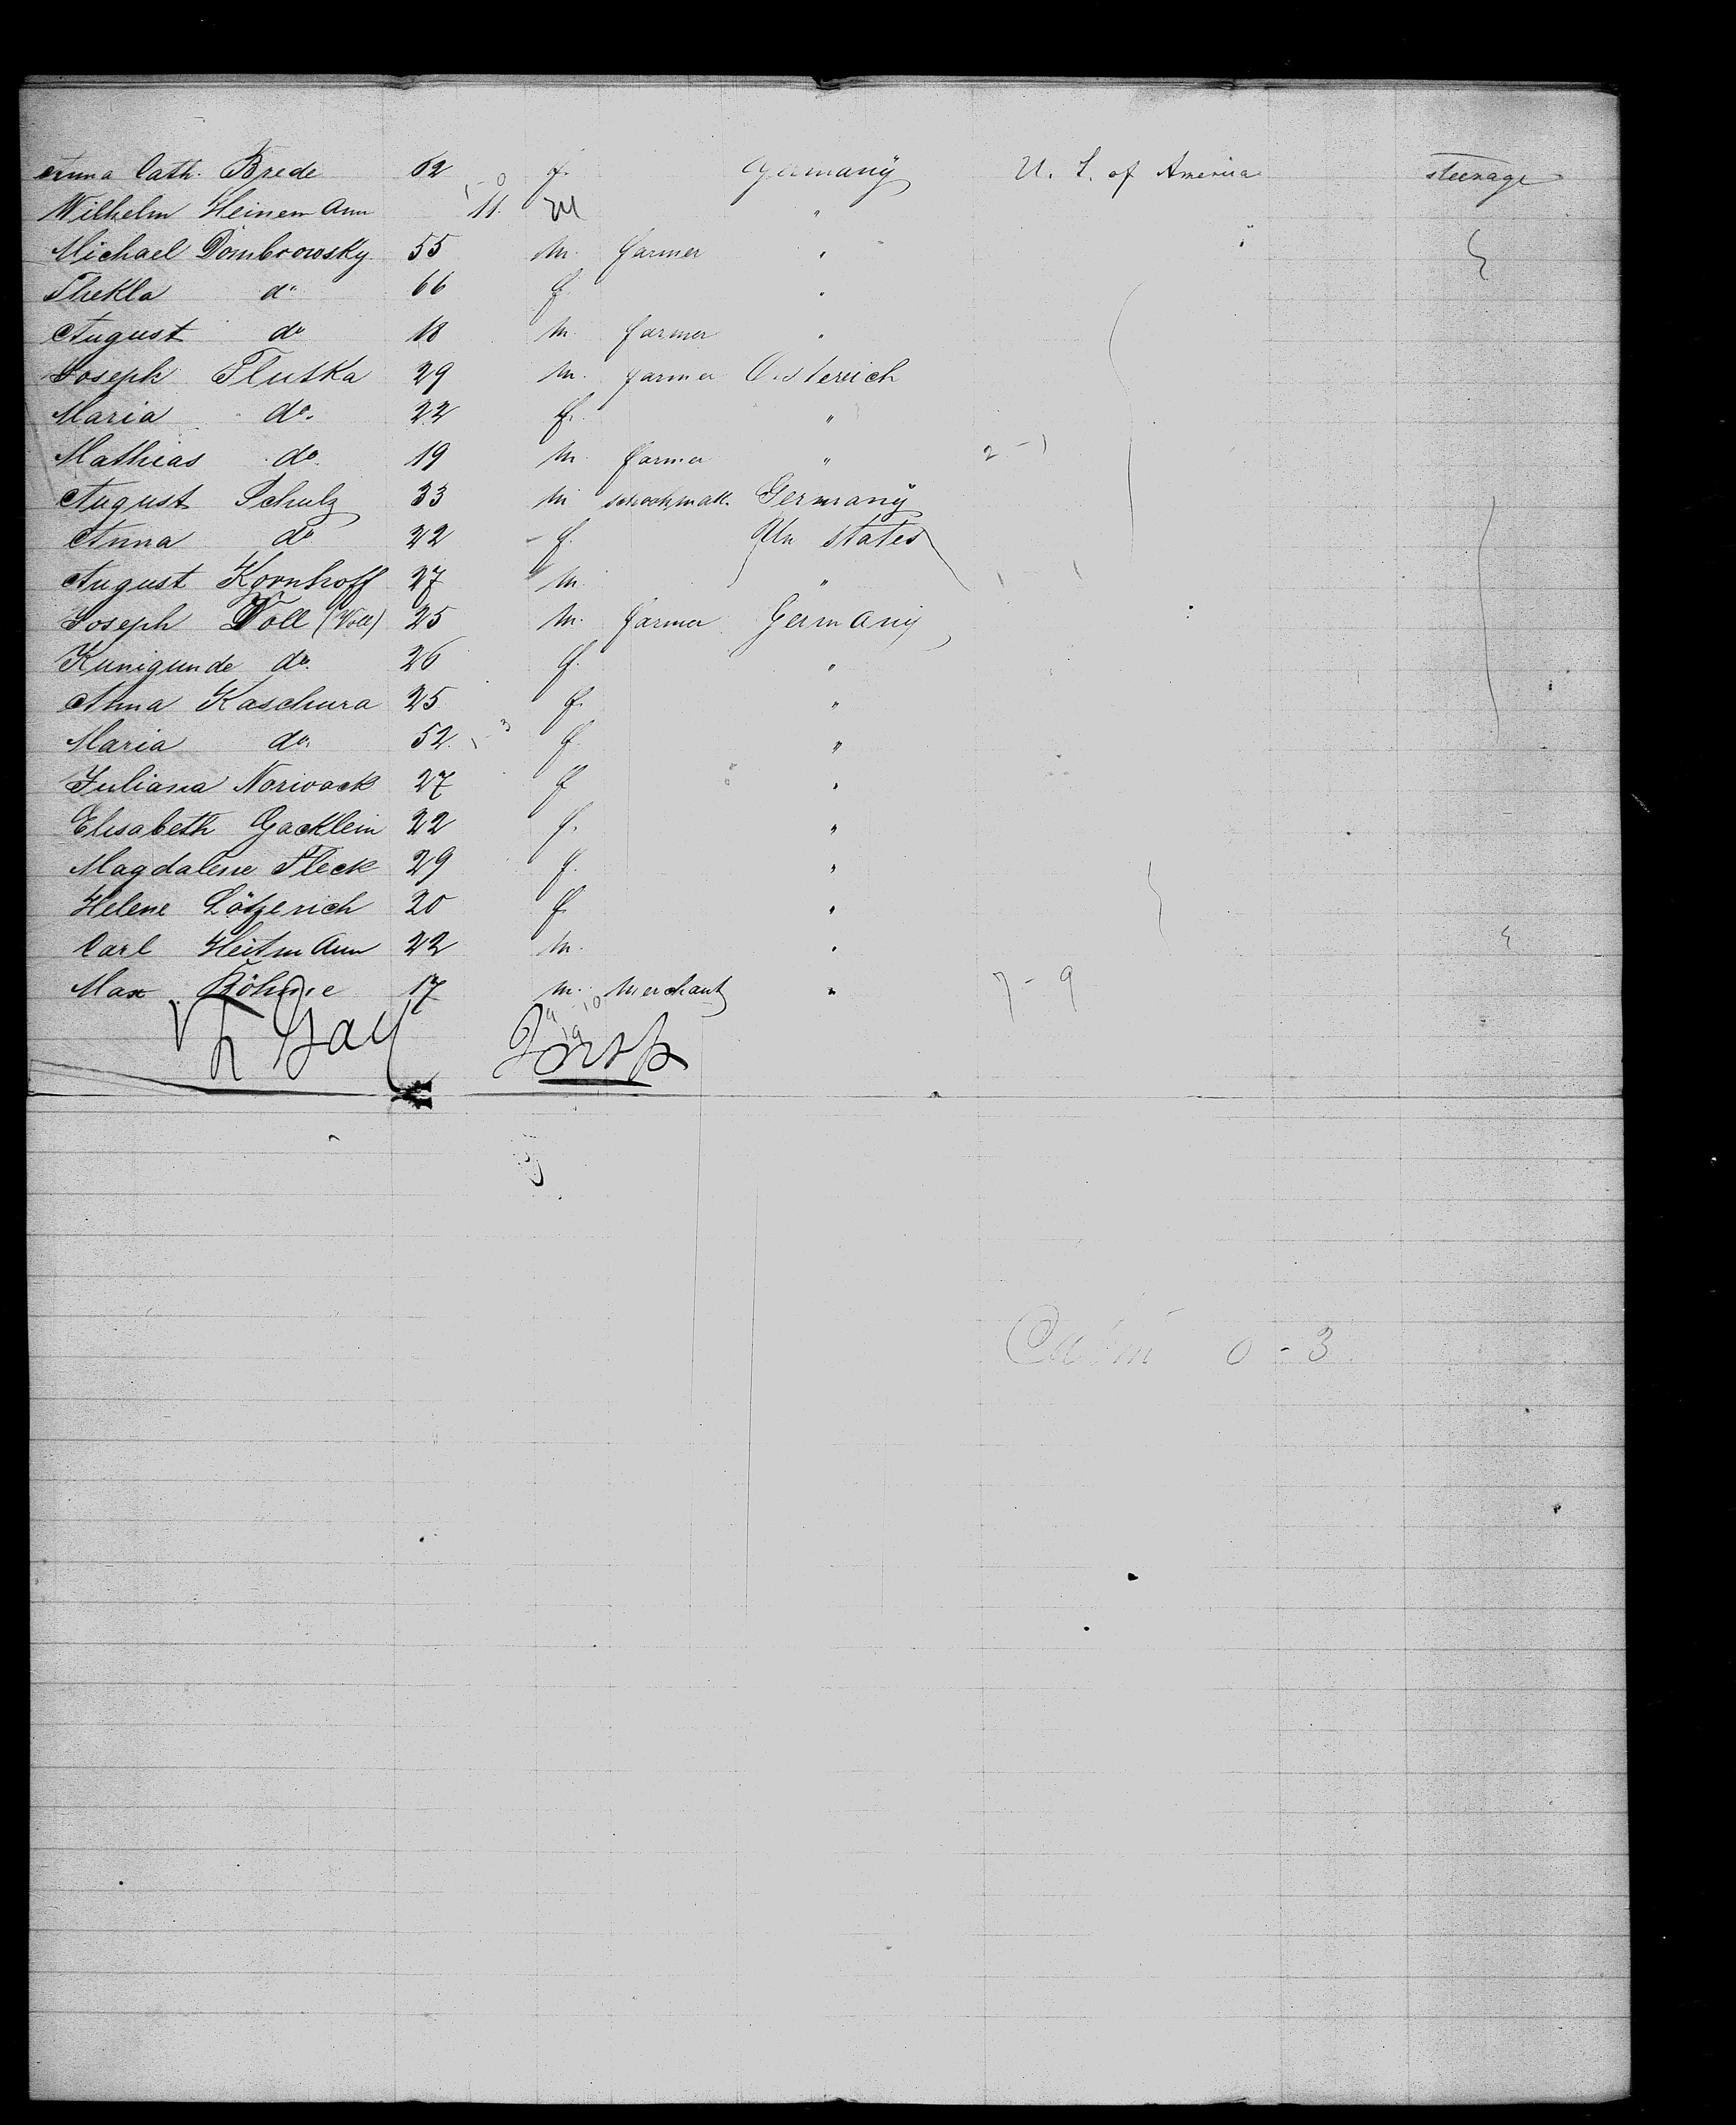 Anna Cath. Brede 62 f. Germany U. S. of America steerage
Wilhelm Heinemann 11. M "
Michael Dombrowsky 55 m. farmer "
Thekla do 66 f. "
August do 18 m. farmer "
Joseph Fluska 29 m. farmer Oestereich
Maria do. 22 f. "
Mathias do. 19 m. farmer " 2 - 1
August Schulz 33 m Germany
Anna do 22 f. Un States
August Kornhoff 27 m. "
Joseph Voll (Voll) 25 m. farmer Germany
Kunigunde do. 26 f. "
Anna Kaschura 25 f. "
Maria do. 52. f. "
Juliana Norwack 27 f "
Elisabeth Gacklein 22 f. "
Magdalene Fleck 29 f. "
Helene Lötzerich 20 f. "
Carl Heitmann 22 m. "
Max Böhme 17 m. Merchant " 7 - 9
Cabin 0 - 3